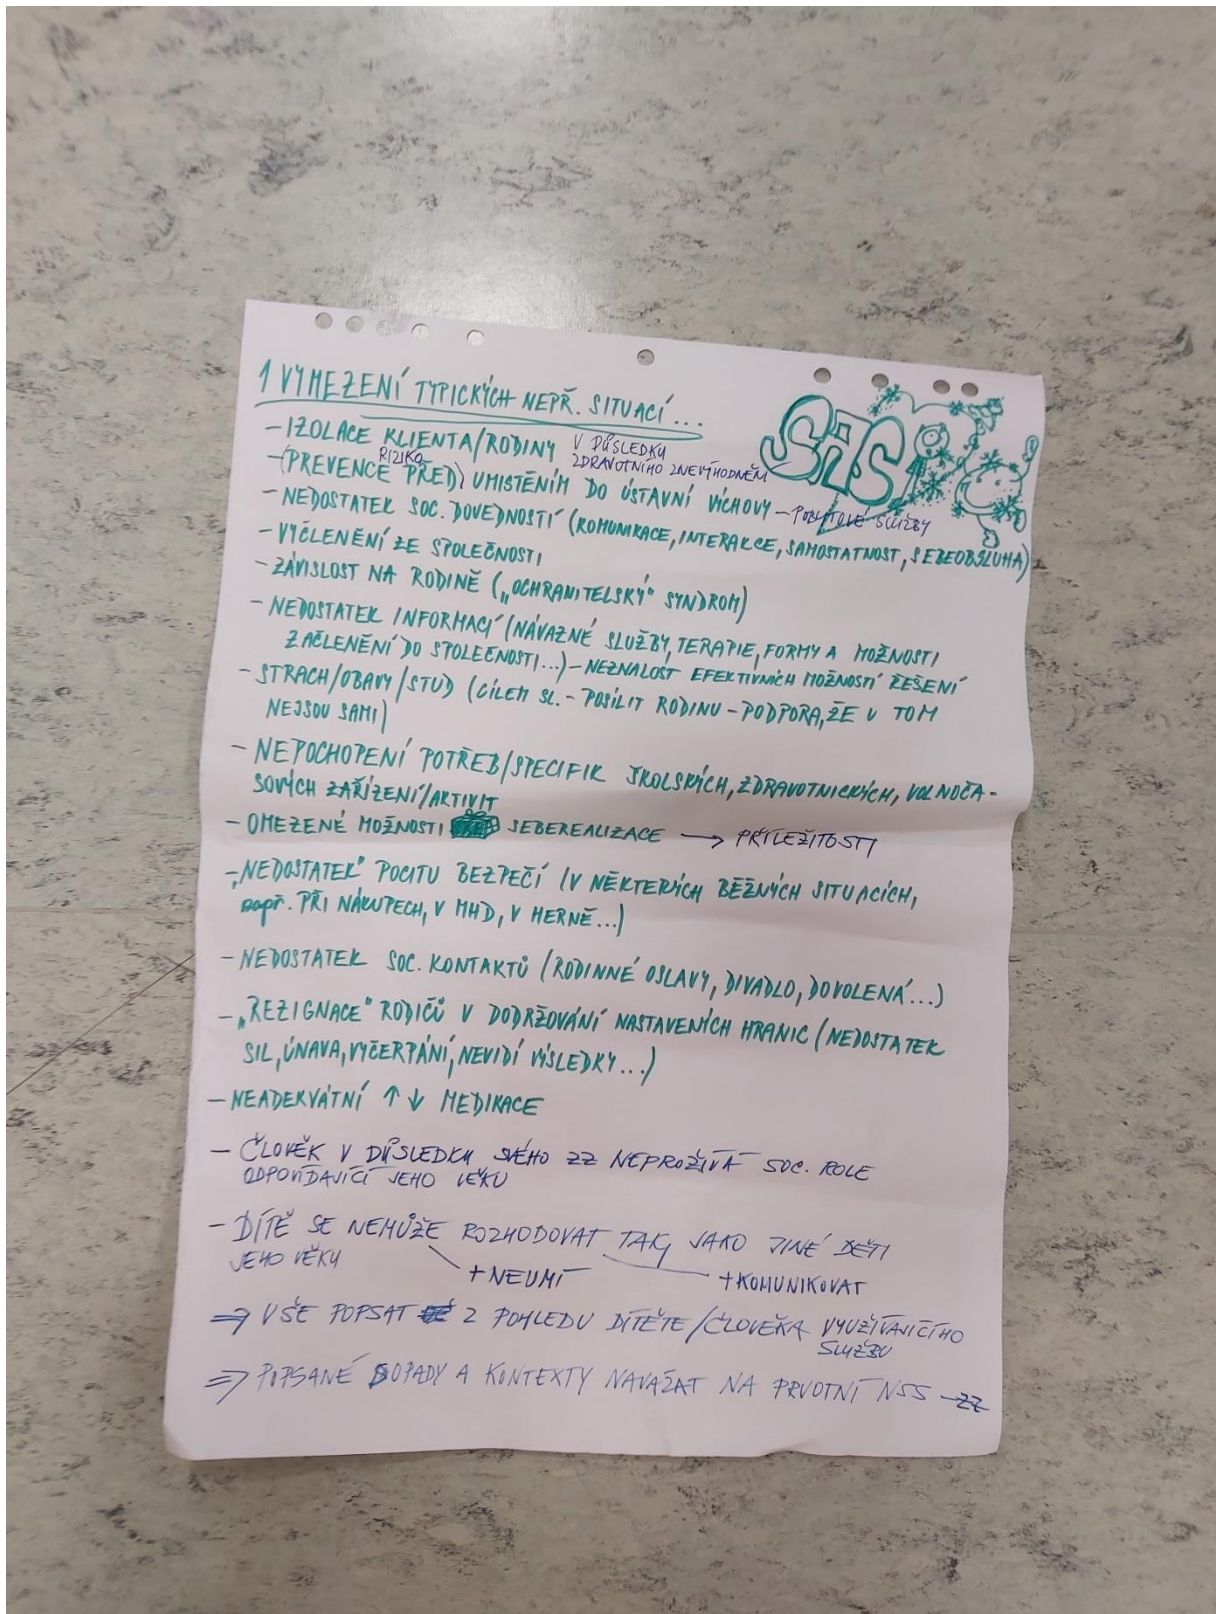 1 VYMEZENÍ TYPICKÝCH NEPŘ. SITUACÍ...
SAS
- IZOLACE KLIENTA/RODINY V DŮSLEDKU
ZDRAVOTNÍHO ZNEVÝHODNĚNÍ
RIZIKO
- (PREVENCE PŘED) UMISTĚNÍM DO ÚSTAVNÍ VÝCHOVY - POBYTOVÉ SLUŽBY
- NEDOSTATEK SOC. DOVEDNOSTÍ (KOMUNIKACE, INTERAKCE, SAMOSTATNOST, SEBEOBSLUHA)
- VYČLENĚNÍ ZE SPOLEČNOSTI
- ZÁVISLOST NA RODINĚ („OCHRANITELSKÝ" SYNDROM)
- NEDOSTATEK INFORMACÍ (NÁVAZNÉ SLUŽBY, TERAPIE, FORMY A MOŽNOSTI
ZAČLENĚNÍ DO SPOLEČNOSTI...) - NEZNALOST EFEKTIVNÍCH MOŽNOSTÍ ŘEŠENÍ
- STRACH/OBAVY/STUD (CÍLEM SL. - POSÍLIT RODINU - PODPORA, ŽE V TOM
NEJSOU SAMI)
- NEPOCHOPENÍ POTŘEB/SPECIFIK ŠKOLSKÝCH, ZDRAVOTNICKÝCH, VOLNOČA-
SOVÝCH ZAŘÍZENÍ/AKTIVIT
- OMEZENÉ MOŽNOSTI SEBEREALIZACE → PŘÍLEŽITOSTI
- „NEDOSTATEK" POCITU BEZPEČÍ (V NĚKTERÝCH BĚŽNÝCH SITUACÍCH,
např. PŘI NÁKUPECH, V MHD, V HERNĚ...)
- NEDOSTATEK SOC. KONTAKTŮ (RODINNÉ OSLAVY, DIVADLO, DOVOLENÁ...)
- „REZIGNACE" RODIČŮ V DODRŽOVÁNÍ NASTAVENÝCH HRANIC (NEDOSTATEK
SIL, ÚNAVA, VYČERPÁNÍ, NEVIDÍ VÝSLEDKY...)
- NEADEKVÁTNÍ ↑↓ MEDIKACE
- ČLOVĚK V DŮSLEDKU SVÉHO ZZ NEPROŽÍVÁ SOC. ROLE
ODPOVÍDAJÍCÍ JEHO VĚKU
- DÍTĚ SE NEMŮŽE ROZHODOVAT TAK, JAKO JINÉ DĚTI
JEHO VĚKU
+ NEUMÍ + KOMUNIKOVAT
⇒ VŠE POPSAT Z POHLEDU DÍTĚTE/ČLOVĚKA VYUŽÍVAJÍCÍHO
SLUŽBU
⇒ POPSANÉ DOPADY A KONTEXTY NAVÁZAT NA PRVOTNÍ NSS - ZZ